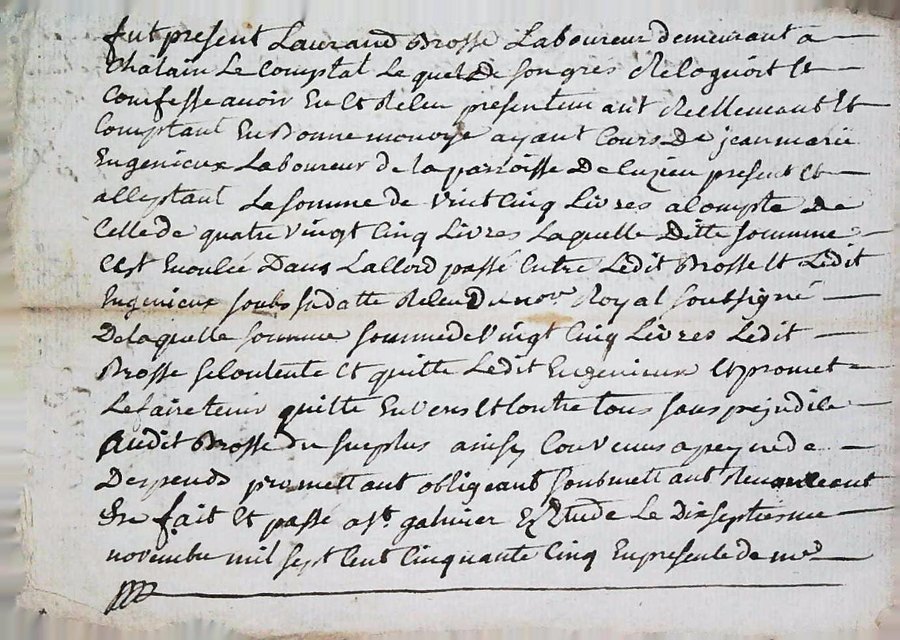 fut present Laurand Brosse Laboureur demeurant a
Chalain Le Comptal Lequel De son gres Relognoit Et
Confesse avoir Eu Et Releu presentem ant Reellemant Et
Comptant En Bonne monoye ayant Cours De jean marie
Eugenieux Laboureur de la parroisse De luzieu present Et
alleptant La somme de vint Cinq Livres a Compte De
Celle de quatre vingt Cinq Livres Laquelle Ditte somme
Est Enoulée Dans Lallord passé Entre Ledit Brosse Et Ledit
Eugenieux soubs sa datte Releu Du nore Royal soussigné
De laquelle somme somme de vingt Cinq Livres Ledit
Brosse se Contente Et quitte Ledit Eugenieux Et promet
Le faire tenir quitte Envers Et Contre tous sans prejudile
Audit Brosse du surplus ainsy Convenus a peyne de
Despends promettant obligeant soubmettant
fait Et passé a st galmier Etude Le Dix septiesme
novembre mil sept Cent Cinquante Cinq En presente de me